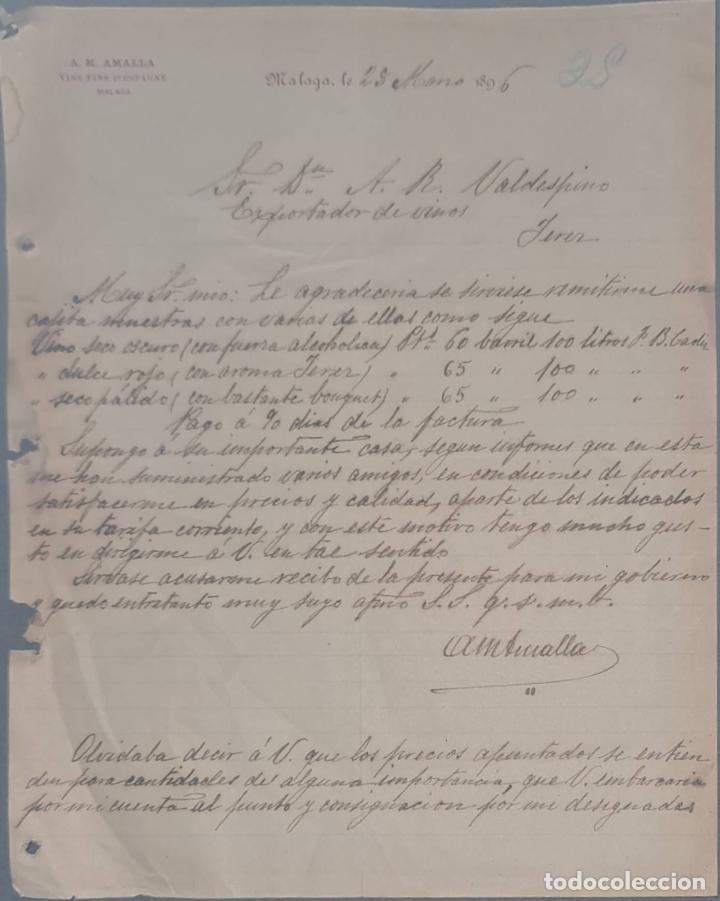 A. M. AMALLA
VINS FINS D'ESPAGNE
MALAGA
Malaga, le 23 Marzo 1896
28
Sr. Dn A. R. Valdespino
Exportador de vinos
Jerez
Muy Sr. mio: Le agradeceria se sirviese remitirme una
cajita muestras con varias de ellas como sigue
Vino seco oscuro (con fuerza alcoholica) Pts 60 barril 100 litros F. B. Cadiz
" dulce rojo (con aroma Jerez) " 65 " 100 " " "
" seco pálido (con bastante bouquet) " 65 " 100 " " "
Pago á 90 dias de la factura
Supongo á su importante casa, segun informes que en esta
me han suministrado varios amigos, en condiciones de poder
satisfacerme en precios y calidad, aparte de los indicados
en su tarifa corriente, y con este motivo tengo mucho gus-
to en dirigirme á V. en tal sentido
Sirvase acusarme recibo de la presente para mi gobierno
y quedo entretanto muy suyo afmo S. S. q. s. m. b.
AMAmalla
Olvidaba decir á V. que los precios apuntados se entien
den para cantidades de alguna importancia, que V. embarcaria
por mi cuenta al punto y consignacion por mi designadas
todocoleccion.net